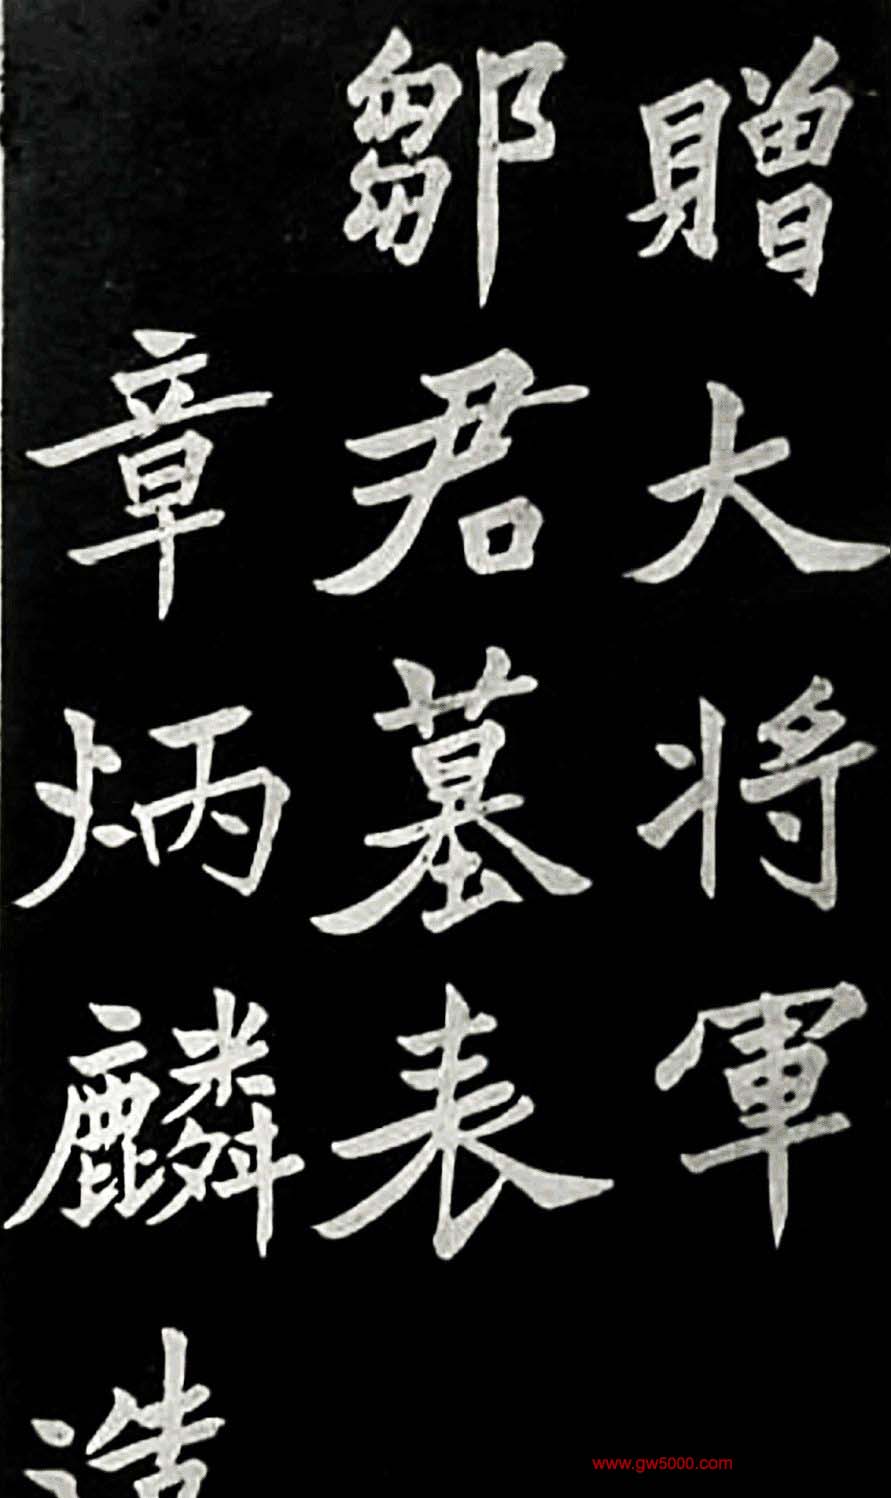 贈大将軍
鄒君墓表
章炳麟造
www.gw5000.com